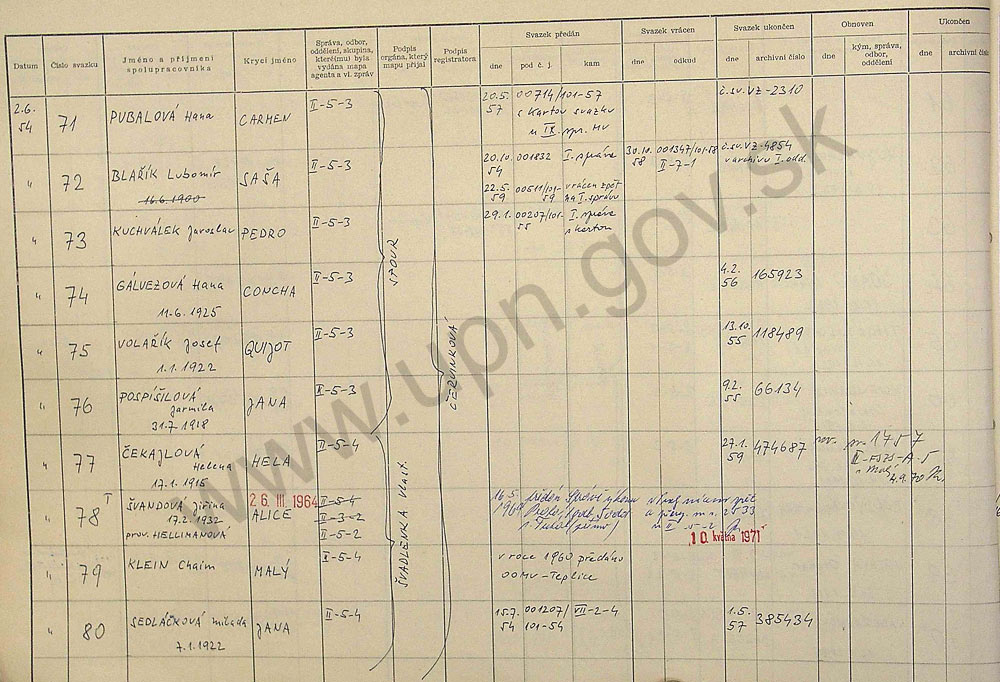 Datum
Číslo svazku
Jméno a příjmení
spolupracovníka
Krycí jméno
Správa, odbor,
oddělení, skupina,
které(mu) byla
vydána mapa
agenta a vl. zpráv
Podpis
orgána, který
mapu přijal
Podpis
registratora
Svazek předán
dne
pod č. j.
kam
Svazek vrácen
dne
odkud
Svazek ukončen
dne
archivní číslo
Obnoven
dne
kým, správa,
odbor,
oddělení
Ukončen
dne
archivní čísl
2.6.
54
71
PUBALOVÁ Hana
CARMEN
II-5-3
20.5.
57
00714/101-57
s kartou svazku
IX. spr. MV
č.sv. VZ-2310
" 72
BLAŘÍK Lubomír
16.6.1900
SAŠA
II-5-3
20.10.
54
001832
I. správa
22.5.
59
00511/101-
59
vrácen zpět
na I. správu
30.10.
58
001347/101-58
II-7-1
č.sv. VZ-4854
v archivu I. odd.
" 73
KUCHVÁLEK Jaroslav
PEDRO
II-5-3
29.1.
55
00207/101-
I. správa
s kartou
" 74
GÁLVEZOVÁ Hana
11.6.1925
CONCHA
II-5-3
4.2.
56
165923
" 75
VOLAŘÍK Josef
1.1.1922
QUIJOT
II-5-3
13.10.
55
118489
" 76
POSPÍŠILOVÁ
Jarmila
31.7.1918
JANA
II-5-3
9.2.
55
66134
" 77
ČEKAJLOVÁ
Helena
17.1.1915
HELA
II-5-4
27.1.
59
474687
1757
4.9.70
" 78
ŠVANDOVÁ Jiřina
17.2.1932
prov. HELLIMANOVÁ
26. III. 1964
ALICE
II-5-4
II-3-2
II-5-2
16.5.
1960
10. května 1971
" 79
KLEIN Chaim
MALÝ
II-5-4
v roce 1960 předáno
OOMV-Teplice
" 80
SEDLÁČKOVÁ Milada
7.1.1922
JANA
II-5-4
15.7.
54
001207/
101-54
VII-2-4
1.5.
57
385434
ŠVADLENKA Vlast.
ČERVINKOVÁ
www.upn.gov.sk